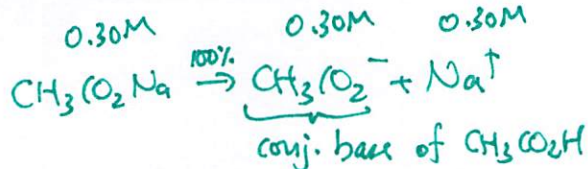 0.30M 0.30M 0.30M
CH₃CO₂Na 100%→ CH₃CO₂⁻ + Na⁺
conj. base of CH₃CO₂H